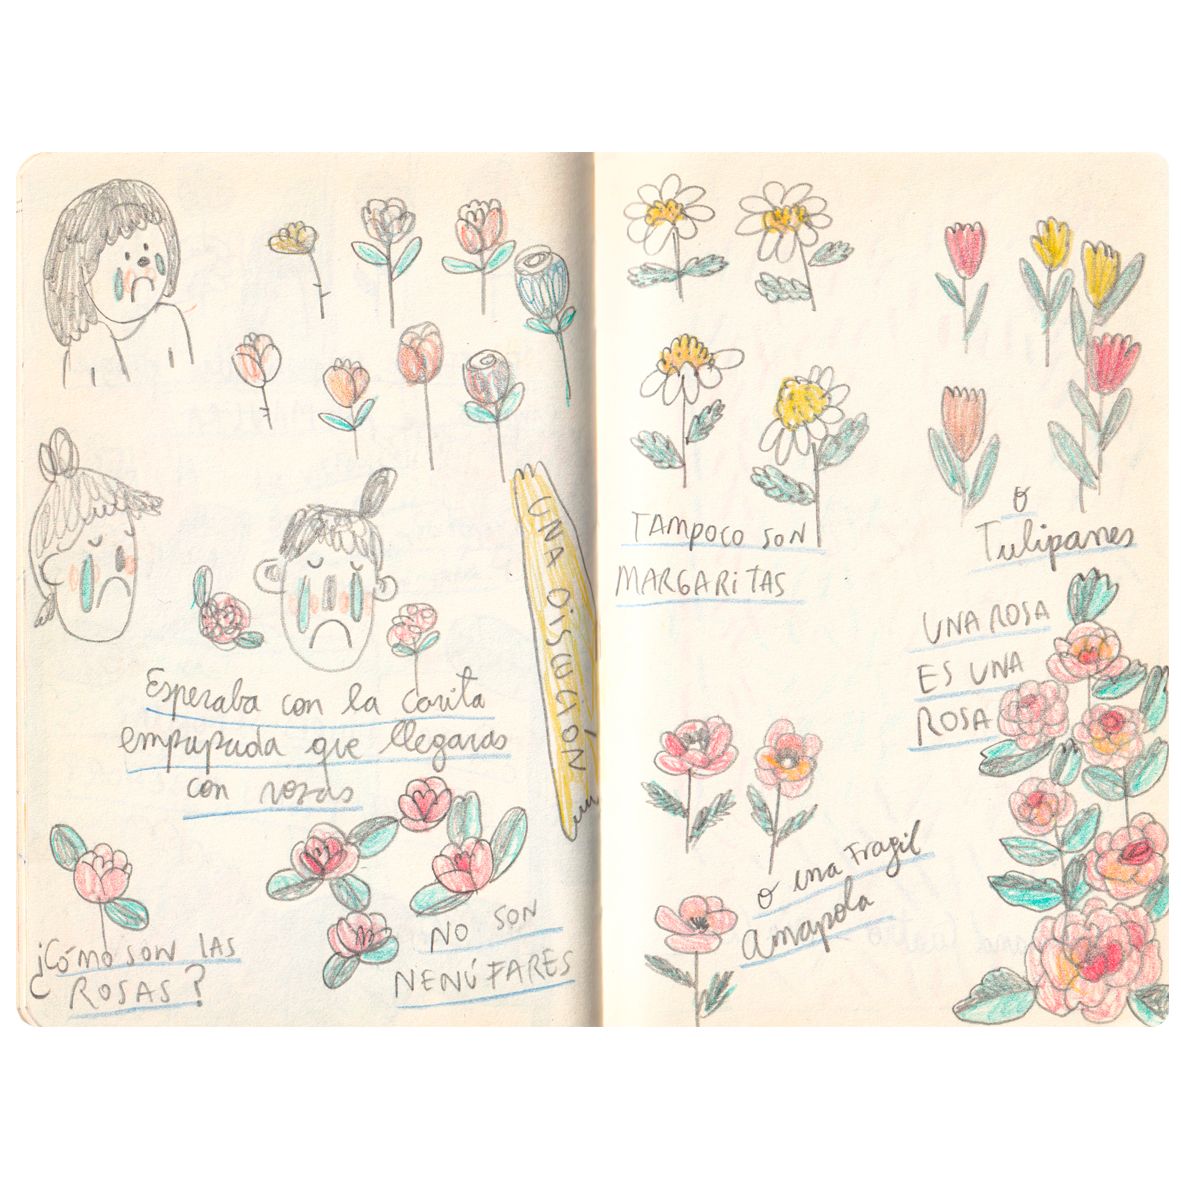 UNA DISCUCIÓN
Esperaba con la carita
empapada que llegaras
con rosas
¿CÓMO SON LAS
ROSAS?
NO SON
NENÚFARES
TAMPOCO SON
MARGARITAS
O
Tulipanes
o una FRAGIL
amapola
UNA ROSA
ES UNA
ROSA